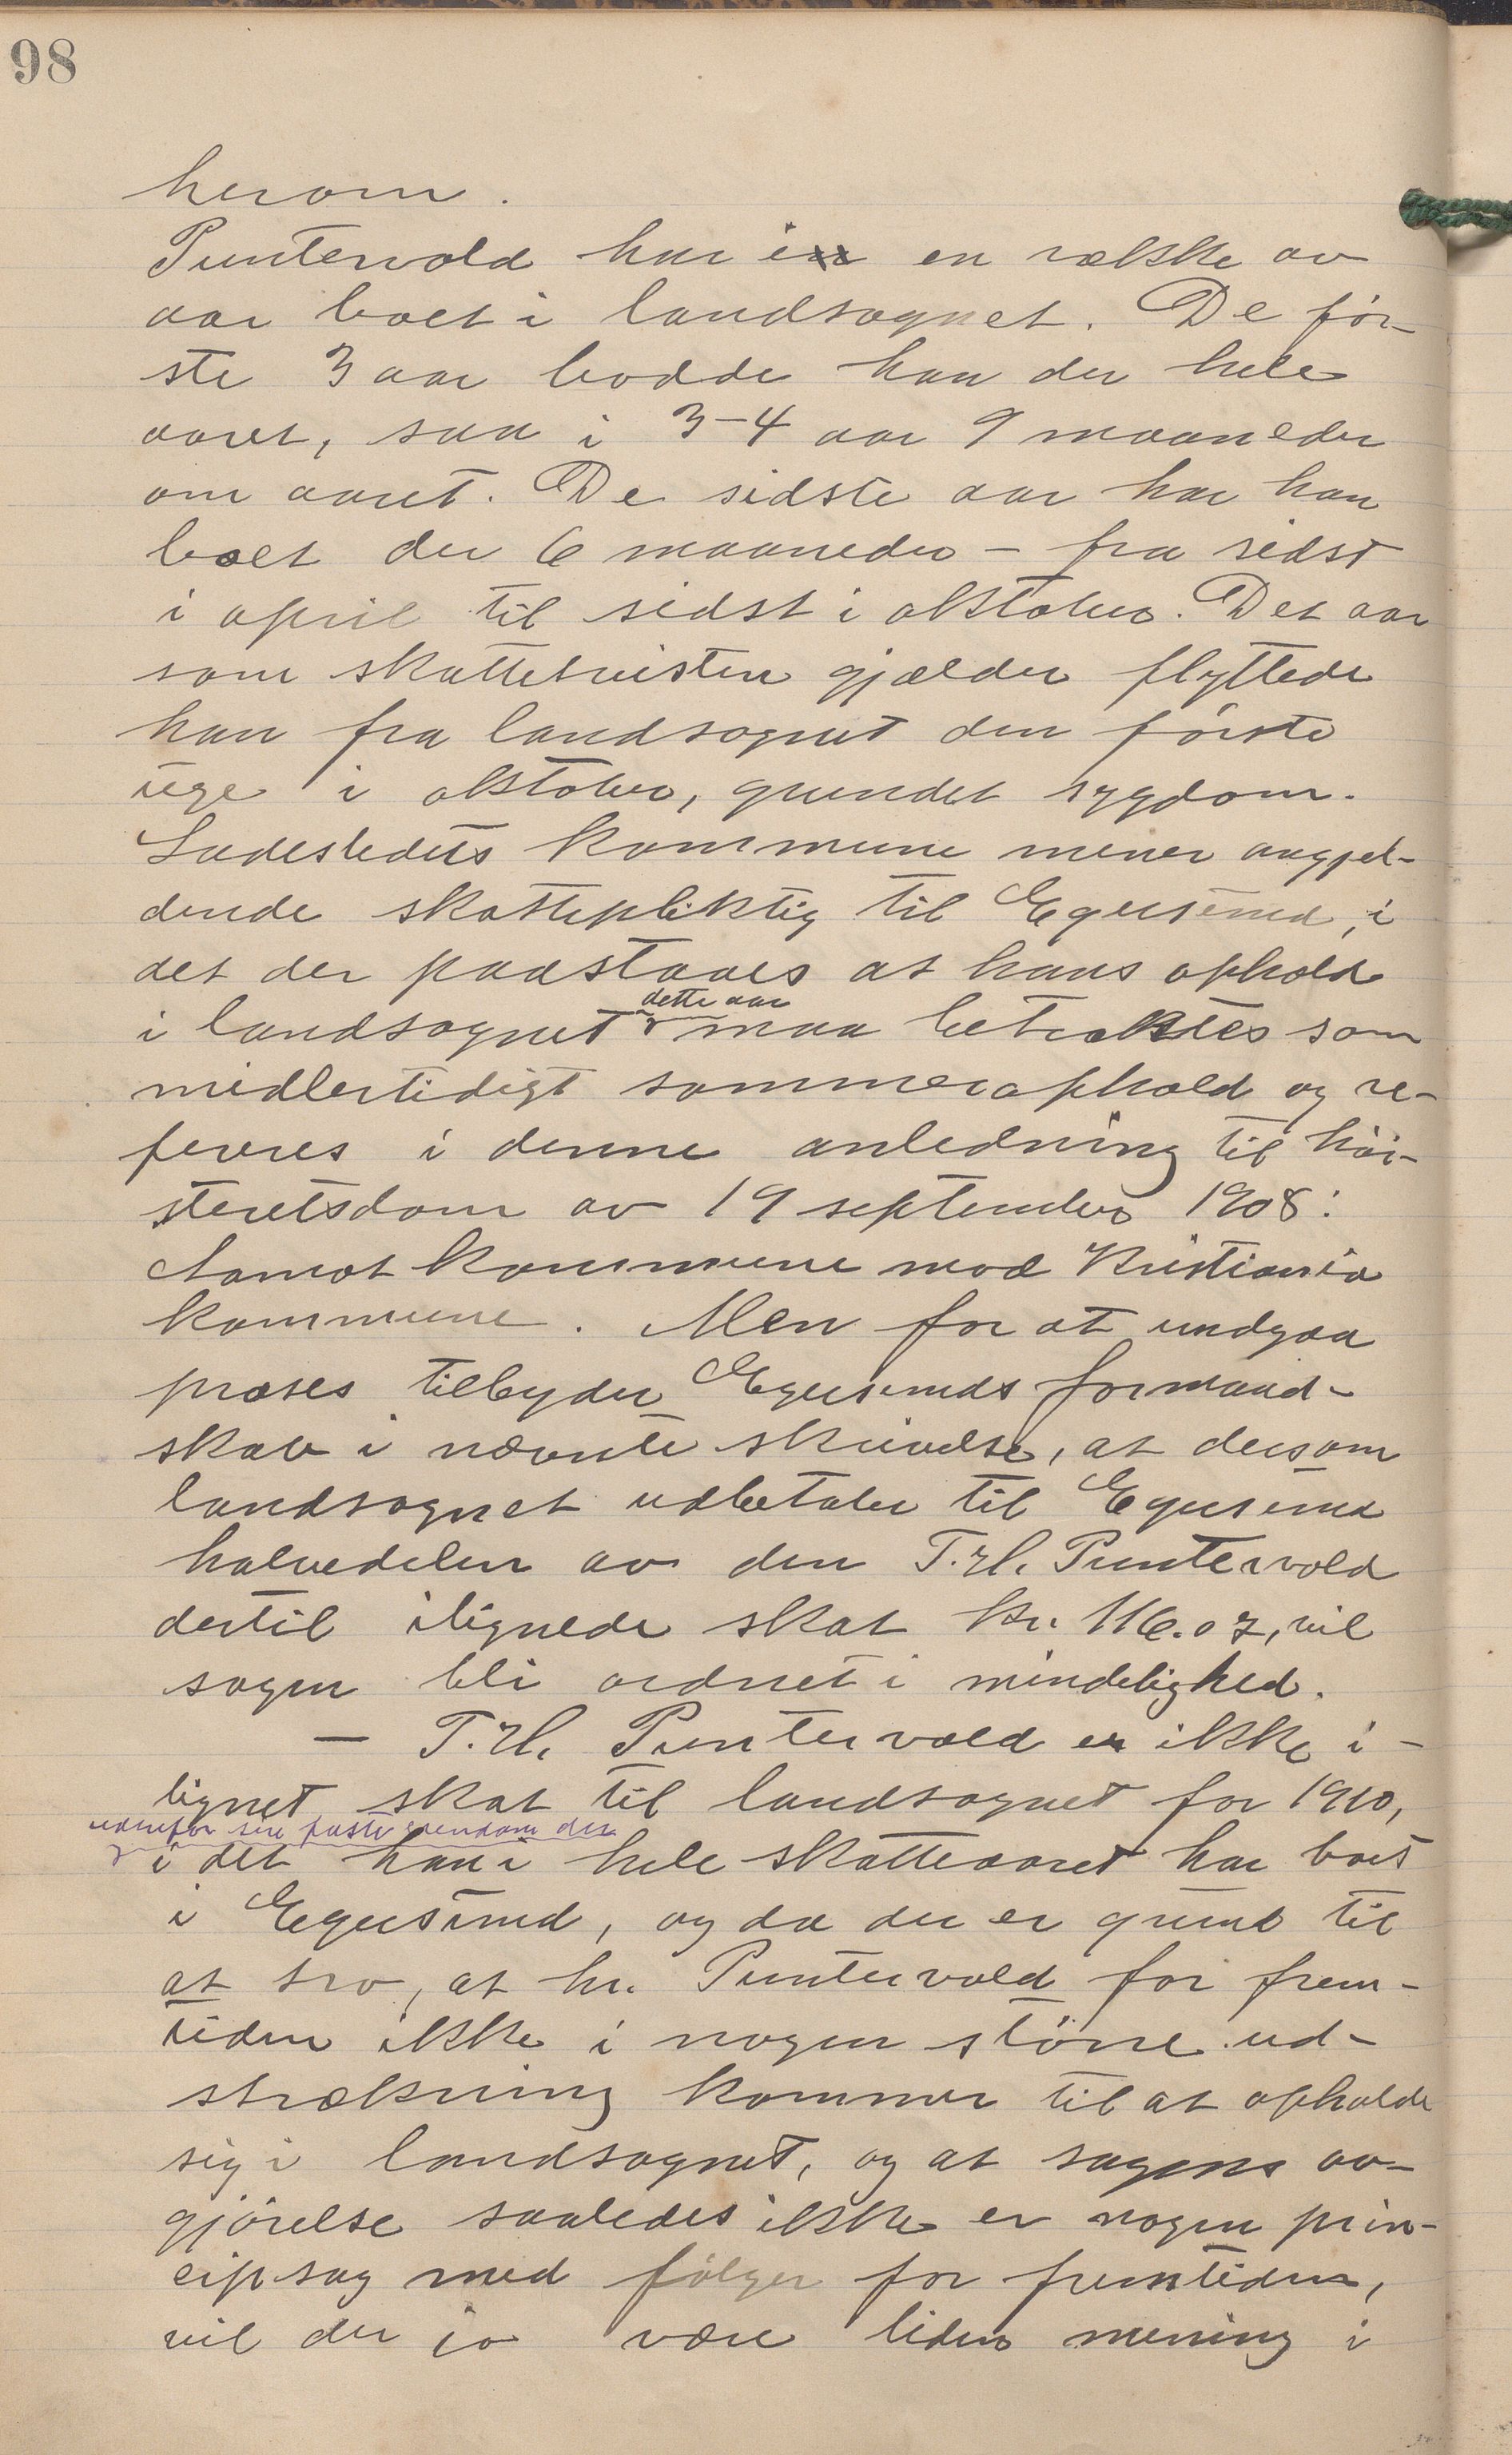 98
herom.
Puntervold har i en række av
aar boet i landsognet. De før-
ste 3 aar bodde han der hele
aaret, saa i 3-4 aar 9 maaneder
om aaret. De sidste aar har han
boet der 6 maaneder - fra sidst
i april til sidst i oktober. Det aar
som skattetvisten gjælder flyttede
han fra landsognet den første
uge i oktober, grundet sygdom.
Ladestedets kommune mener angjel-
dende skattepliktig til Egersund, i
det der paastaaes at hans ophold
dette aar
i landsognet maa betraktes som
midlertidigt sommerophold og re-
fereres i denne anledning til høi-
steretsdom av 19 september 1908:
Aamot kommune mod Kristiania
kommune. Men for at undgaa
proses tilbyder Egersunds formand-
skab i nævnte skrivelse, at dersom
landsognet udbetaler til Egersund
halvedelen av den T. H. Puntervold
dertil ilignede skat kr. 116.07, vil
sagen bli ordnet i mindelighed.
- T. H. Puntervold er ikke i-
lignet skat til landsognet for 1910,
udenfor sin faste eiendom der
i det han i hele skatteaaret har boet
i Egersund, og da der er grund til
at tro, at hr. Puntervold for frem-
tiden ikke i nogen større ud-
strækning kommer til at opholde
sig i landsognet, og at sagens av-
gjørelse saaledes ikke er nogen prin-
cipsag med følger for fremtiden,
vil der jo være liden mening i